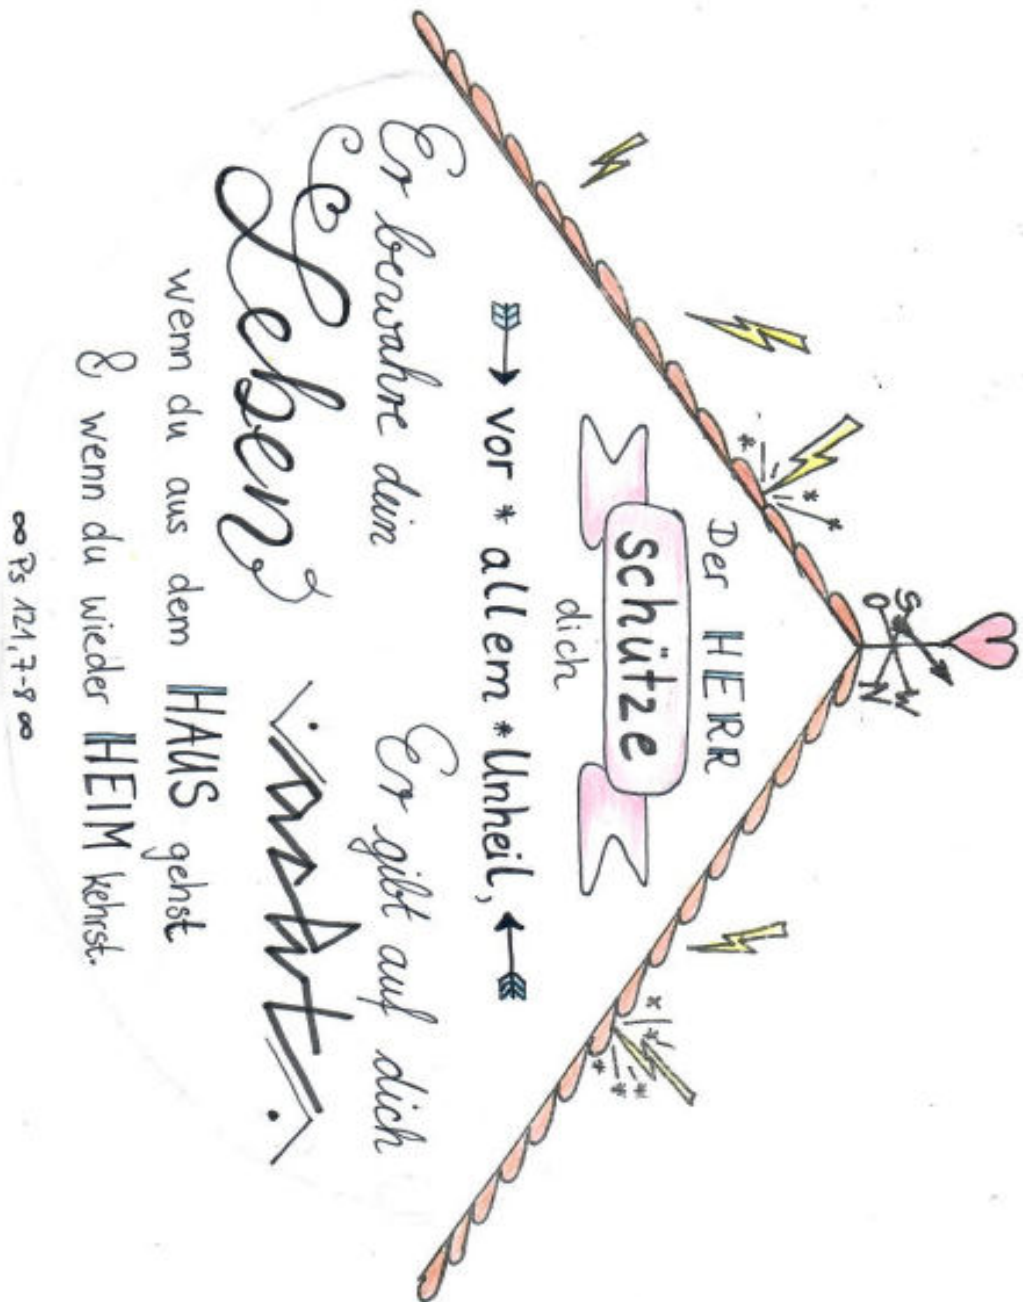 S W
O N
Der HERR
schütze
dich
vor * allem * Unheil,
Er bewahre dein
Leben
Er gibt auf dich
acht
wenn du aus dem HAUS gehst
& wenn du wieder HEIM kehrst.
∞ Ps 121,7-8 ∞